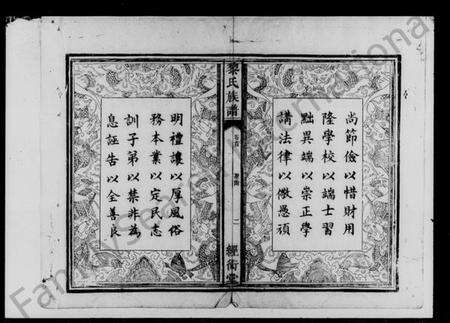 尚節儉以惜財用
隆學校以端士習
黜異端以崇正學
講法律以儆愚頑
黎氏族譜
卷首
一
經術堂
明禮讓以厚風俗
務本業以定民志
訓子弟以禁非為
息誣告以全善良
FamilySearch International